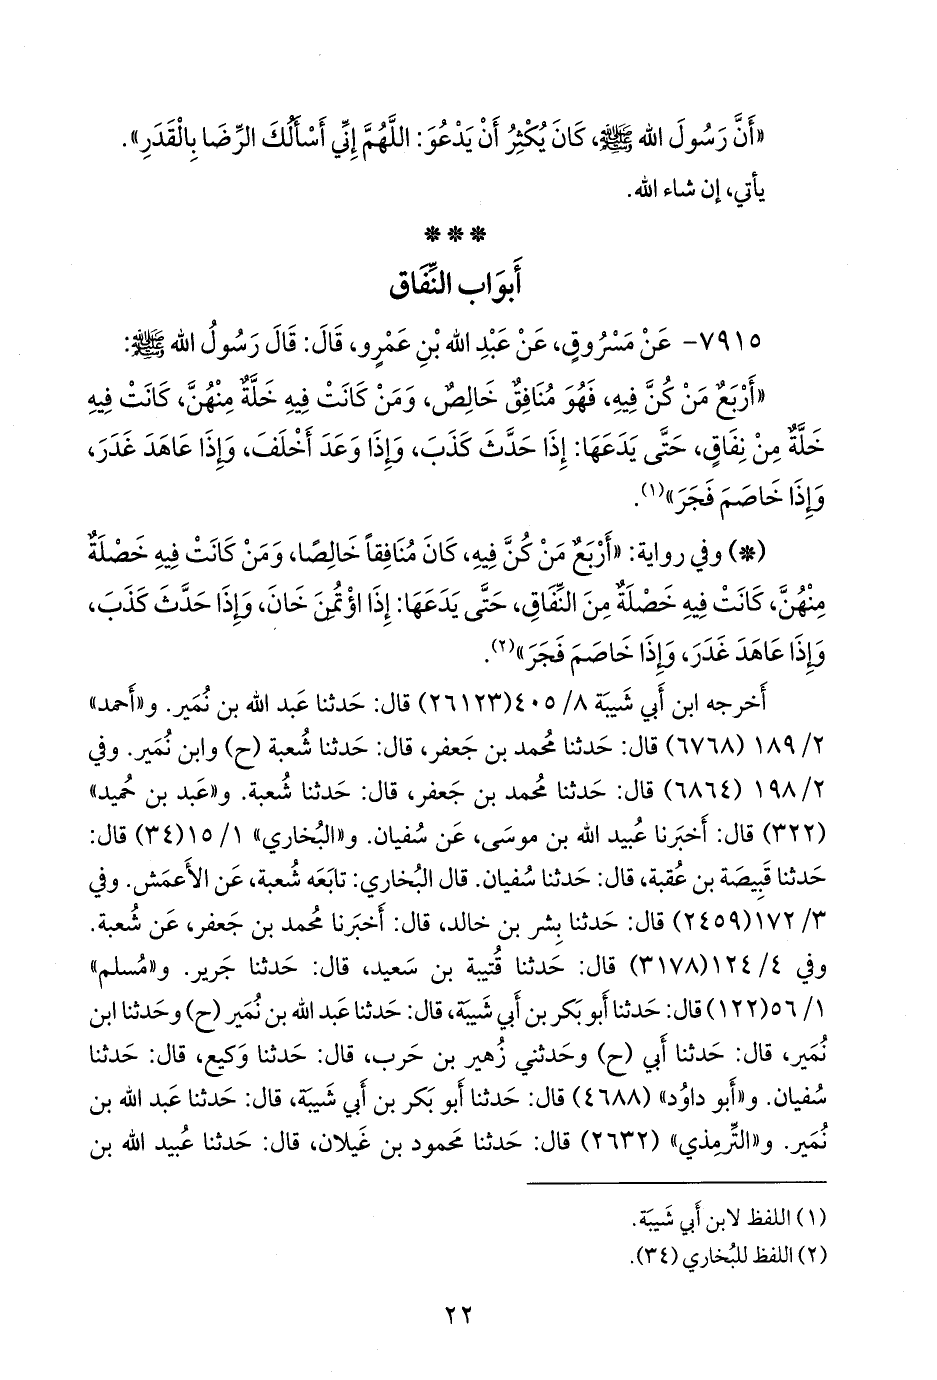 «أَنَّ رَسُولَ الله ﷺ، كَانَ يُكْثِرُ أَنْ يَدْعُوَ: اللَّهُمَّ إِنِّي أَسْأَلُكَ الرِّضَا بِالْقَدَرِ».
يأتي، إن شاء الله.
* * *
أَبوَاب النِّفَاق
٧٩١٥- عَنْ مَسْرُوقٍ، عَنْ عَبْدِ الله بْنِ عَمْرٍو، قَالَ: قَالَ رَسُولُ الله ﷺ:
«أَرْبَعٌ مَنْ كُنَّ فِيهِ، فَهُوَ مُنَافِقٌ خَالِصٌ، وَمَنْ كَانَتْ فِيهِ خَلَّةٌ مِنْهُنَّ، كَانَتْ فِيهِ
خَلَّةٌ مِنْ نِفَاقٍ، حَتَّى يَدَعَهَا: إِذَا حَدَّثَ كَذَبَ، وَإِذَا وَعَدَ أَخْلَفَ، وَإِذَا عَاهَدَ غَدَرَ،
وَإِذَا خَاصَمَ فَجَرَ»(١).
(*) وفي رواية: «أَرْبَعٌ مَنْ كُنَّ فِيهِ، كَانَ مُنَافِقاً خَالِصًا، وَمَنْ كَانَتْ فِيهِ خَصْلَةٌ
مِنْهُنَّ، كَانَتْ فِيهِ خَصْلَةٌ مِنَ النِّفَاقِ، حَتَّى يَدَعَهَا: إِذَا اؤْتُمِنَ خَانَ، وَإِذَا حَدَّثَ كَذَبَ،
وَإِذَا عَاهَدَ غَدَرَ، وَإِذَا خَاصَمَ فَجَرَ»(٢).
أَخرجه ابن أَبي شَيبَة ٨/ ٤٠٥(٢٦١٢٣) قال: حَدثنا عَبد الله بن نُمَير. و«أَحمد»
٢/ ١٨٩ (٦٧٦٨) قال: حَدثنا محُمد بن جَعفر، قال: حَدثنا شُعبة (ح) وابن نُمَير. وفي
٢/ ١٩٨ (٦٨٦٤) قال: حَدثنا محُمد بن جَعفر، قال: حَدثنا شُعبة. و«عَبد بن حُميد»
(٣٢٢) قال: أَخبَرنا عُبيد الله بن موسَى، عَن سُفيان. و«البُخاري» ١/ ١٥(٣٤) قال:
حَدثنا قَبِيصَة بن عُقبة، قال: حَدثنا سُفيان. قال البُخاري: تابَعَه شُعبة، عَن الأَعمَش. وفي
٣/ ١٧٢(٢٤٥٩) قال: حَدثنا بِشر بن خالد، قال: أَخبَرنا محُمد بن جَعفر، عَن شُعبة.
وفي ٤/ ١٢٤(٣١٧٨) قال: حَدثنا قُتيبة بن سَعيد، قال: حَدثنا جَرير. و«مُسلم»
١/ ٥٦(١٢٢) قال: حَدثنا أَبو بَكر بن أَبي شَيبَة، قال: حَدثنا عَبد الله بن نُمَير (ح) وحَدثنا ابن
نُمَير، قال: حَدثنا أَبي (ح) وحَدثني زُهير بن حَرب، قال: حَدثنا وَكيع، قال: حَدثنا
سُفيان. و«أَبو داوُد» (٤٦٨٨) قال: حَدثنا أَبو بَكر بن أَبي شَيبَة، قال: حَدثنا عَبد الله بن
نُمَير. و«التِّرمِذي» (٢٦٣٢) قال: حَدثنا مَحمود بن غَيلان، قال: حَدثنا عُبيد الله بن
(١) اللفظ لابن أَبي شَيبَة.
(٢) اللفظ للبُخاري (٣٤).
٢٢